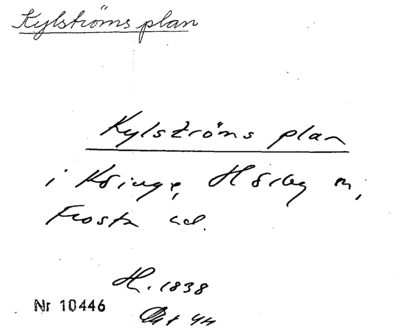 Kylströms plan
Kylströms plan
i Köinge, Hörby n,
Frosta hd.
H. 1838
44
Nr 10446